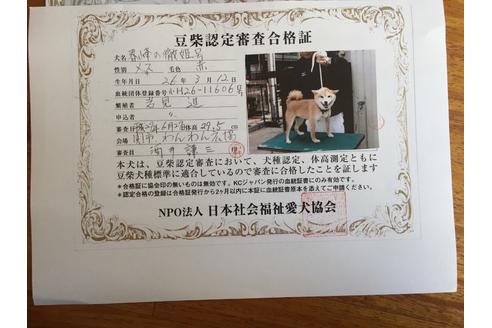 豆柴認定審査合格証
犬名 春峰の 姫号
性別 メス 毛色 赤
生年月日 26年3月12日
血統団体登録番号 小H26-11606号
繁殖者
申込者 〃
審査日 6月2 体高 29.5cm
会場 わんわん広場
審査員 三 印
本犬は、豆柴認定審査において、犬種認定、体高測定ともに
豆柴犬種標準に適合しているので審査に合格したことを証します
*合格証に協会印の無いものは無効です。KCジャパン発行の血統証書にのみ有効です。
*認定合格の登録は合格証発行から2ヶ月以内に本証に血統証書原本を添えてご申請ください。
NPO法人 日本社会福祉愛犬協会